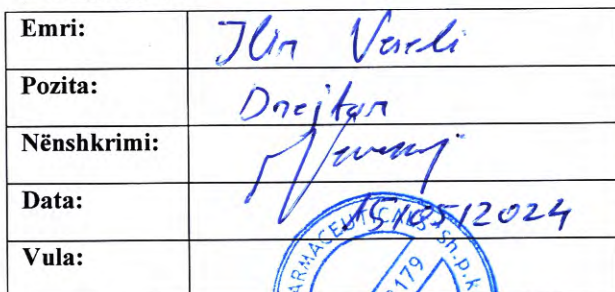 Emri: Ilir Veseli
Pozita: Drejtor
Nënshkrimi:
Data: 15/05/2024
Vula:
Sh.p.k
179